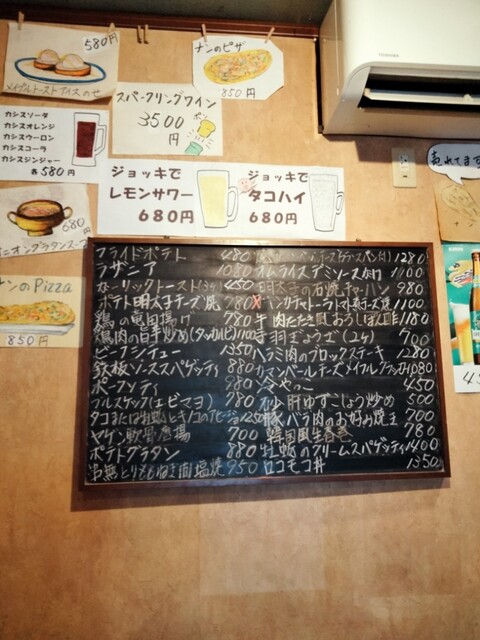 580円
メイプルトーストアイスのせ
ナンのピザ
850円
スパークリングワイン
3500
円
ポン
TOSHIBA
カシスソーダ
カシスオレンジ
カシスウーロン
カシスコーラ
カシスジンジャー
各580円
ジョッキで
レモンサワー
680円
ジョッキで
タコハイ
680円
売れてます
680
円
オニオングランタスープ
ナンのPizza
850円
フライドポテト 480
ラザニア 1080
ガーリックトースト 450
ポテト明太チーズ焼 780
鶏の竜田揚げ 780
鶏肉の甘辛炒め(タッカルビ) 1100
ビーフシチュー 1350
鉄板ソーススパゲッティ 880
980
ブルスケッタ(エビマヨ) 780
タコまたは牡蛎とキノコのアヒージョ 1250
ヤゲン軟骨唐揚 700
ポテトグラタン 880
950
1280
オムライスデミソースかけ 1100
明太子の石焼チャーハン 980
チーズ焼 1100
1180
手羽ぎょうざ(2ヶ) 700
ハラミ肉のブロックステーキ 1280
カマンベールチーズメイプル 1080
冷やっこ 450
砂肝ゆずこしょう炒め 500
豚バラ肉のお好み焼き 700
韓国風生春巻 780
牡蛎のクリームスパゲッティ 1400
ロコモコ丼 1350